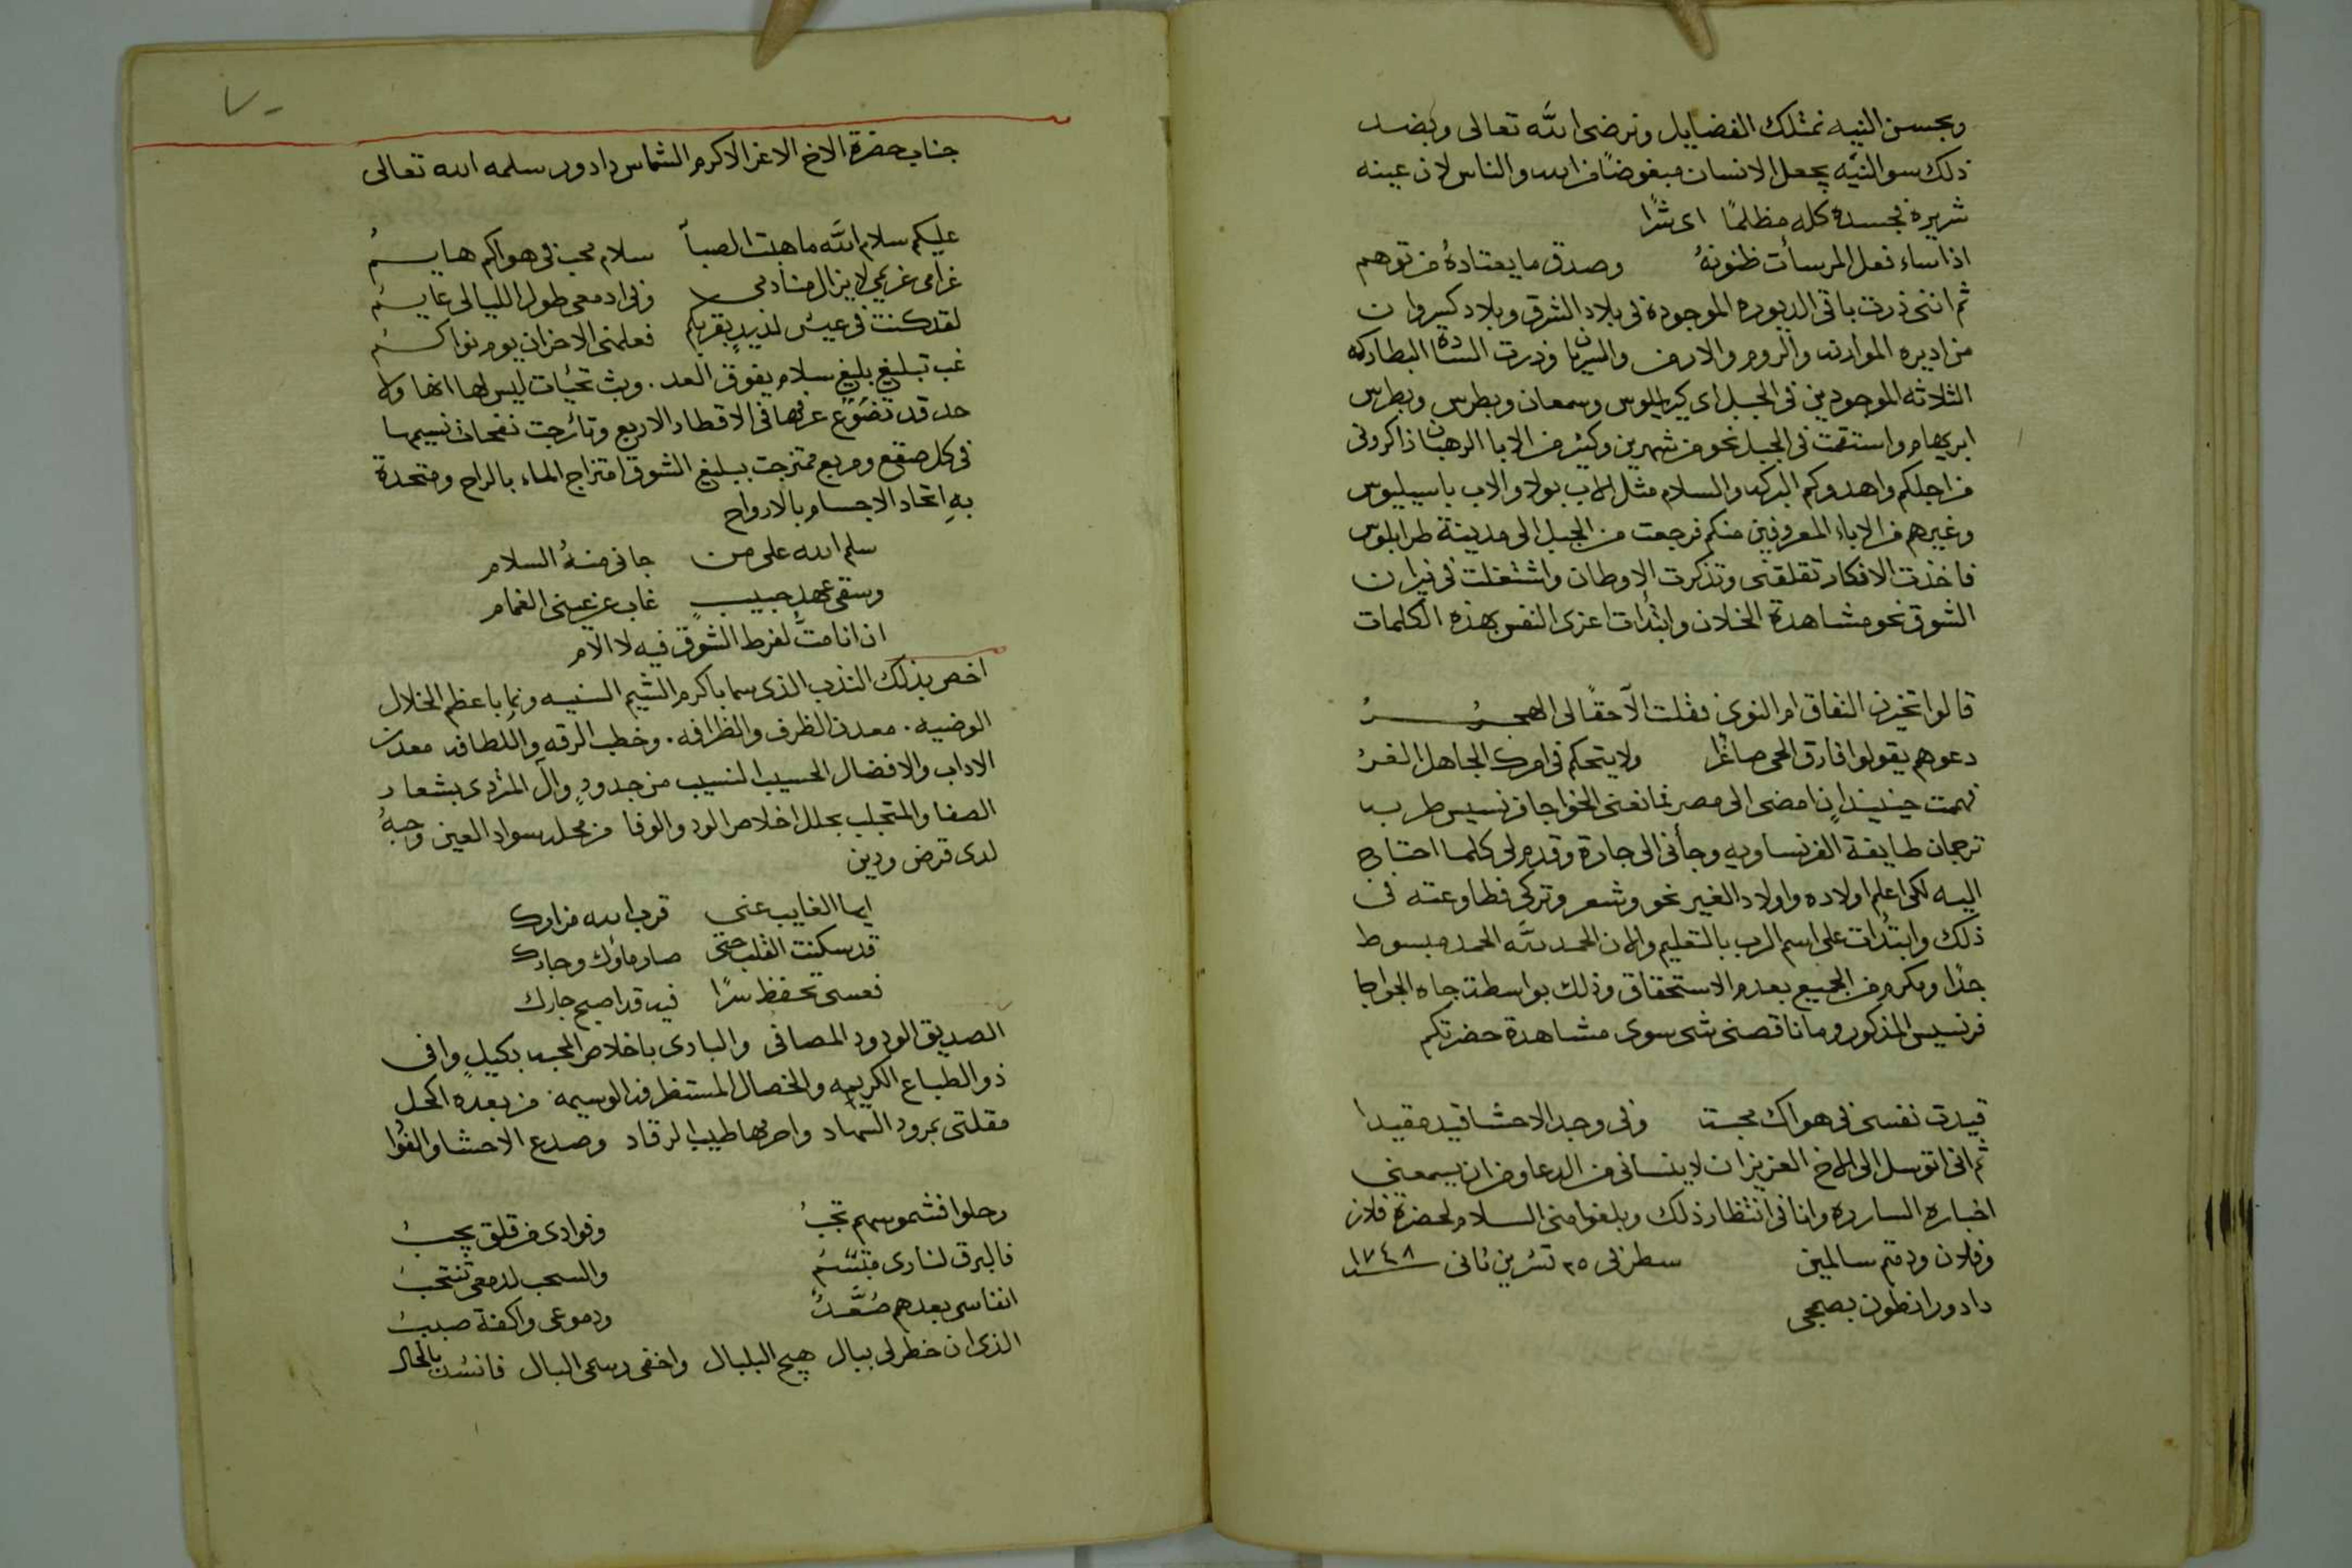 وبحسن النيه نمتلك الفضايل ونرضى الله تعالى وبضد
ذلك سو النيه يجعل الانسان مبغوضًا من الله والناس لان عينه
شريره فجسده كله مظلمًا اى شرًا
اذا ساء فعل المر سأت ظنونهُ وصدق ما يعتادهُ من توهم
ثم اننى زرت باقى الديوره الموجودة فى بلاد الشرق وبلاد كسروان
من اديره الموارنه والروم والارمن والسريان وزرت السادة البطاركه
الثلاثه الموجودين فى الجبل اى كيرللوس وسمعان وبطرس وبطرس
ابريهام واستقمت فى الجبل نحو من شهرين وكثير من الابا الرهبان ذاكرونى
من اجلكم واهدوكم البركه والسلام مثل الاب بولا والاب باسيليوس
وغيرهم من الاباء المعروفين منكم فرجعت من الجبل الى مدينة طرابلوس
فاخذت الافكار تقلقنى وتذكرت الاوطان واشتعلت فى نيران
الشوق نحو مشاهدة الخلان وابتدات اعزى النفس بهذه الكلمات
قالوا تخزن النفاق ام النوى فقلت الّا حقًا لى الهجرُ
دعوهم يقولوا فارق الحى صاغرًا ولا يتحكم فى امرك الجاهل الغرُ
فهمت حينيذٍ ان امضى الى مصر فمانعنى الخواجا فرنسيس طرب
ترجمان طايفة الفرنساويه وجأنى الى جارة وقدم لى كلما احتاج
اليه لكى اعلم اولاده واولاد الغير نحو وشعر وتركى فطاوعته فى
ذلك وابتدأت على اسم الرب بالتعليم والان الحمد لله الحمد مبسوط
جدًا ومكرم من الجميع بعدم الاستحقاق وذلك بواسطة جاه الخواجا
فرنسيس المذكور وما ناقصنى شى سوى مشاهدة حضرتكم
قيدت نفسى فى هواك محبة وفى وجد الاحشا قيد مقيدا
ثم انى اتوسل الى الاخ العزيز ان لا ينسانى من الدعا ومن ان يسمعنى
اخباره الساره وانا فى انتظار ذلك وبلغوا منى السلام لحضرة فلان
وفلان ودمتم سالمين سطر فى ٢٥ تشرين ثانى سنه ١٧٤٨
داود انطون بصمجى
٧٠
جناب حضرة الاخ الاعز الاكرم الشماس داود سلمه الله تعالى
عليكم سلام الله ما هبت الصبا سلام محب فى هواكم هايمُ
غرامى غريمى لا يزال منادمى وفى ادمعى طول الليالى عايمُ
لقد كنت فى عيش لذيذٍ بقربكم فعلمنى الاحزان يوم نواكمُ
غب تبليغ بليغ سلام يفوق العد. وبث تحيات ليس لها انها ولا
حد قد تضوَّع عرفها فى الاقطار الاربع وتأرجت نفحات نسيمها
فى كل صقع ومربع ممتزجت ببليغ الشوق امتزاج الماء بالراح ومتحدة
بهِ اتحاد الاجسام بالارواح
سلم الله على من جانى منهُ السلام
وسقى عهد حبيبٍ غاب عن عينى الغمام
ان انا متُّ لفرط الشوق فيه لا الام
اخص بذلك الندب الذى سما باكرم الشيم السنيه ونما باعظم الخلال
الوضيه. معدن الظرف والظرافه. وخطب الرقه واللطافه معدن
الاداب والافضال الحسيب النسيب من جدودٍ وآل المتردى بشعار
الصفا والمتجلبب بحلل اخلاص الود والوفا من محله سواد العين وحبهُ
لدى فرض ودين
ايها الغايب عنى قرب الله مزارك
قد سكنت القلب حتى صار مأوك وجارك
فعسى تحفظ سرًا فيه قد اصبح جارك
الصديق الودود المصافى والبادى باخلاص المحبه بكيلٍ وافى
ذو الطباع الكريمه والخصال المستظرفه الوسيمه من بعده اكحل
مقلتى بمرود السهاد واحرمها طيب الرقاد وصدع الاحشا والفوا
رحلوا فشموسهم تجبُ وفوادى من قلق يجبُ
فالبرق لنارى مبتسمُ والسحب لدمعى تنتحبُ
انفاسى بعدهم صُعَّدٌ ودموعى واكفة صببُ
الذى ان خطر لى ببال هيج البلبال واخفى رسمى البال فانشدت بالحال